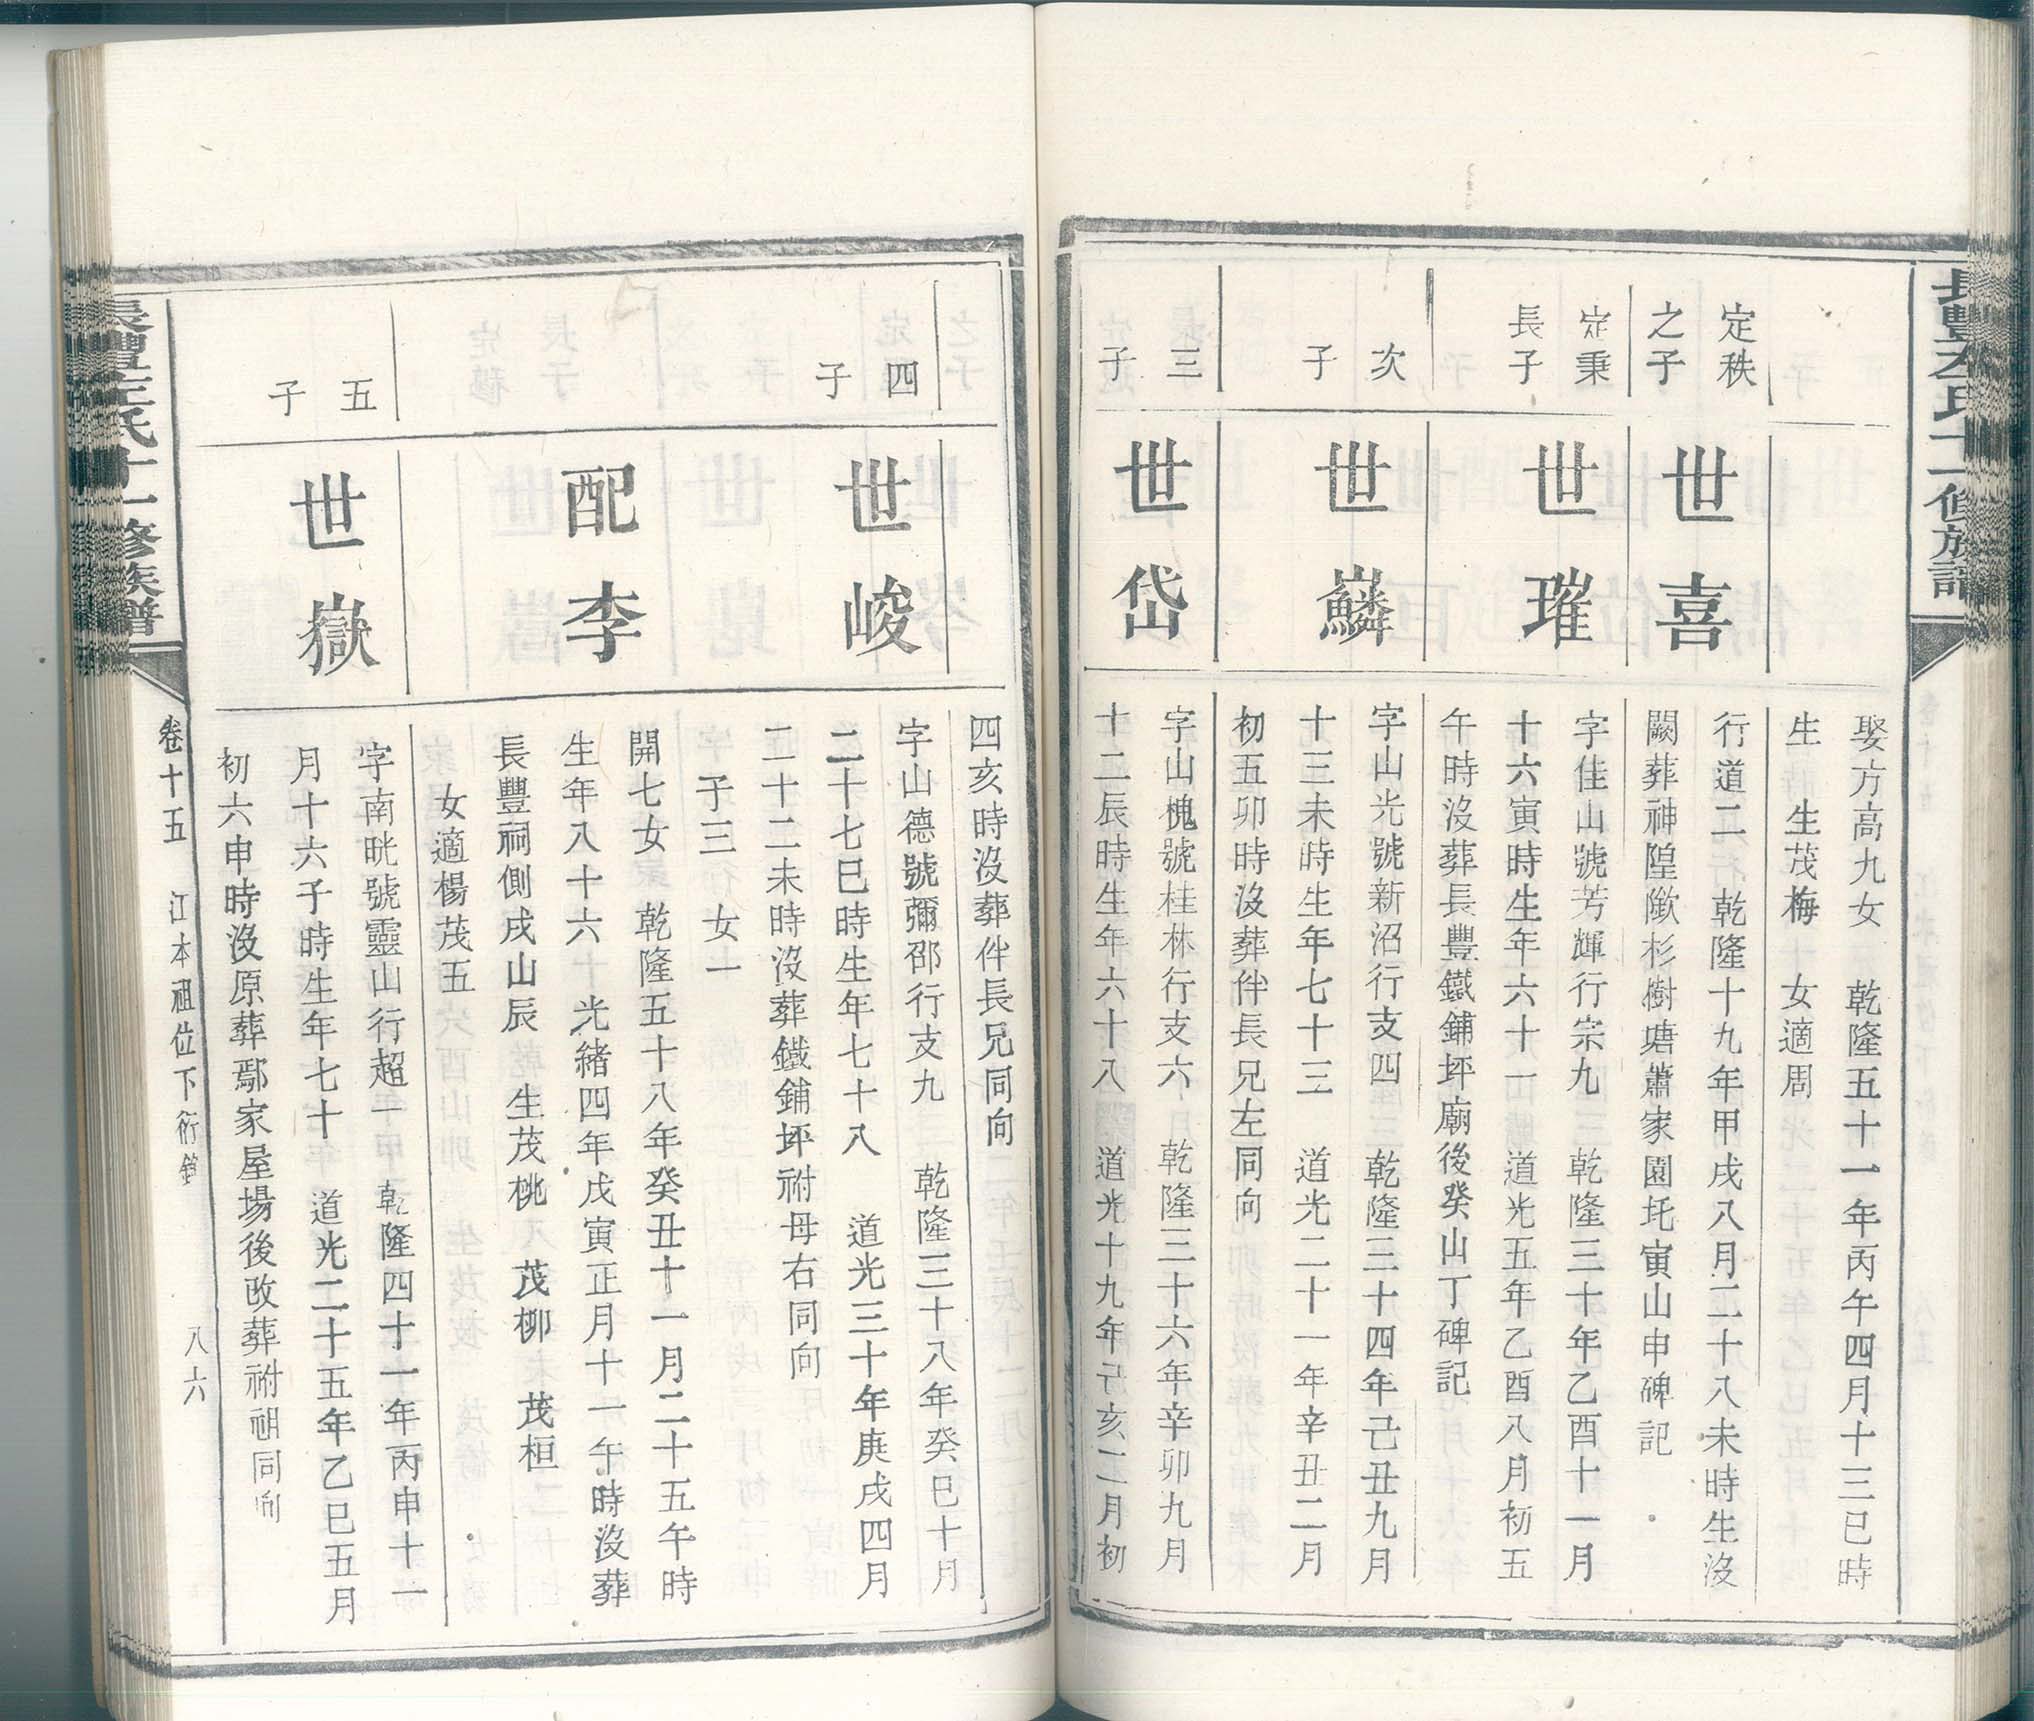 娶方高九女　乾隆五十一年丙午四月十三巳時
生　生茂梅　女適周
定秩
之子
世喜
行道二　乾隆十九年甲戌八月二十八未時生沒
闕葬神隍隙杉樹塘蕭家園坉寅山申碑記
定秉
長子
世璀
字佳山號芳輝行宗九　乾隆三十年乙酉十一月
十六寅時生年六十一　道光五年乙酉八月初五
午時沒葬長豐鐵鋪坪廟後癸山丁碑記
次
子
世鱗
字山光號新沼行支四　乾隆三十四年己丑九月
十三未時生年七十三　道光二十一年辛丑二月
初五卯時沒葬伴長兄左同向
三
子
世岱
字山槐號桂林行支六　乾隆三十六年辛卯九月
十二辰時生年六十八　道光十九年己亥二月初
四亥時沒葬伴長兄同向
四
子
世峻
字山德號彌邵行支九　乾隆三十八年癸巳十月
二十七巳時生年七十八　道光三十年庚戌四月
二十二未時沒葬鐵鋪坪祔母右同向
子三　女一
配李
開七女　乾隆五十八年癸丑十一月二十五午時
生年八十六　光緒四年戊寅正月十一午時沒葬
長豐祠側戌山辰　生茂桃　茂柳　茂桓
女適楊茂五
五
子
世嶽
字南晄號靈山行超一　乾隆四十一年丙申十一
月十六子時生年七十　道光二十五年乙巳五月
初六申時沒原葬鄢家屋場後改葬祔祖同向
長豐左氏十一修族譜
卷十五　江本祖位下衍
八六